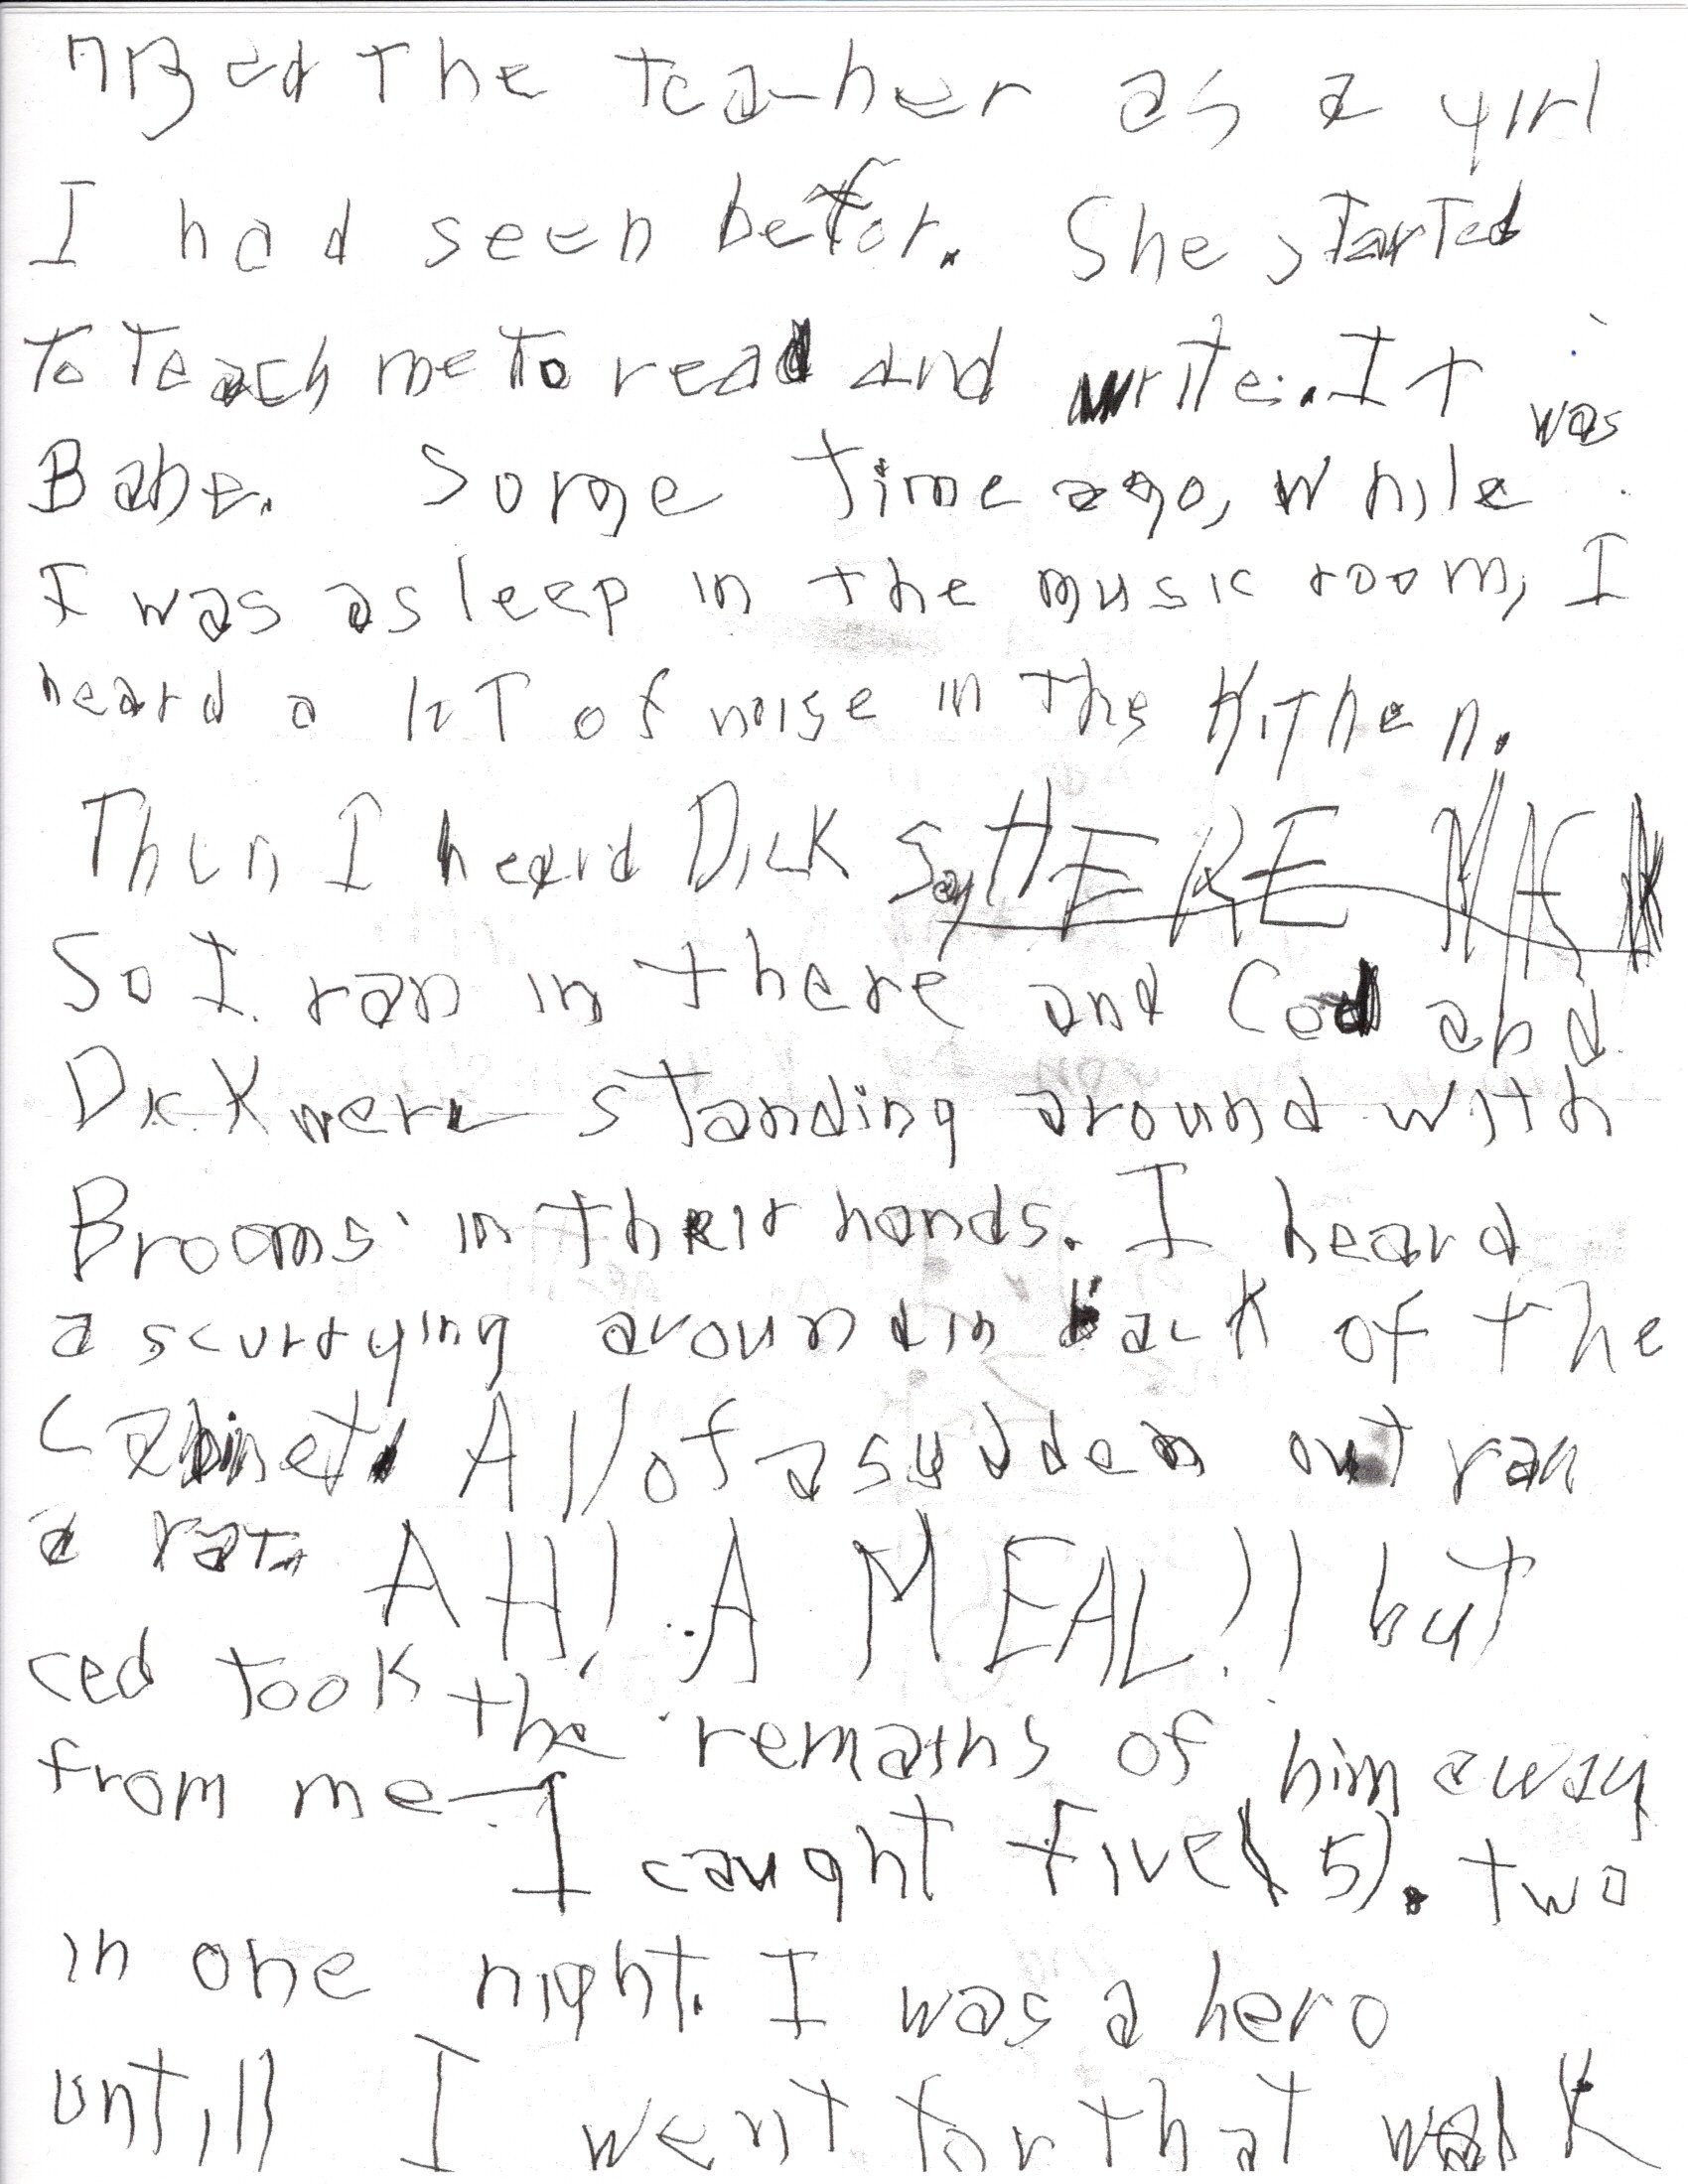 the teacher as a girl
I had seen befor. She started
to teach me to read and write. It was
Babe. Some time ago, while
I was asleep in the music room, I
heard a lot of noise in the Kithen.
Then I heard Dick Say HERE MAC
So I ran in there and Ced and
Dick were standing around with
Brooms in their hands. I heard
a scurrying around in back of the
Cabinet. All of a sudden out ran
a rat. AH! A MEAL!! but
ced took the remains of him away
from me— I caught five (5). two
in one night. I was a hero
untill I went for that walk